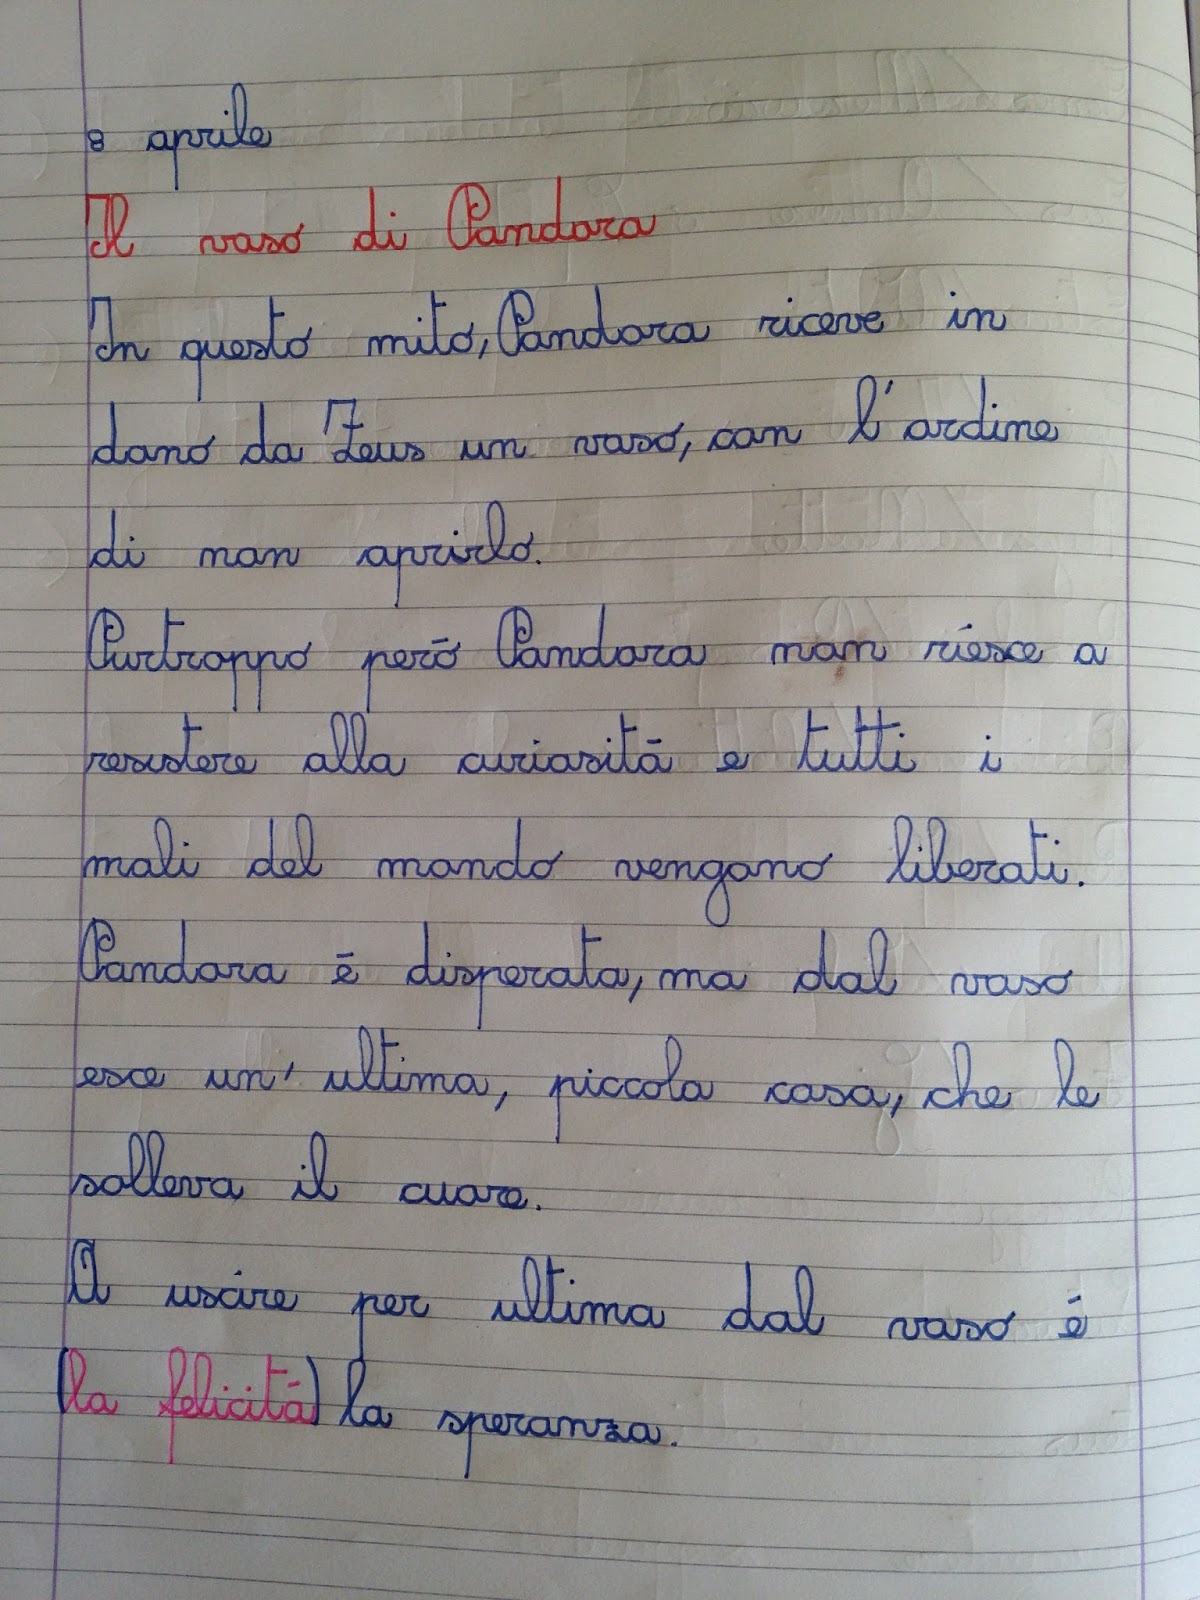 8 aprile
Il vaso di Pandora
In questo mito, Pandora riceve in
dono da Zeus un vaso, con l'ordine
di non aprirlo.
Purtroppo però Pandora non riesce a
resistere alla curiosità e tutti i
mali del mondo vengono liberati.
Pandora è disperata, ma dal vaso
esce un' ultima, piccola cosa, che le
solleva il cuore.
A uscire per ultima dal vaso è
(la felicità) la speranza.